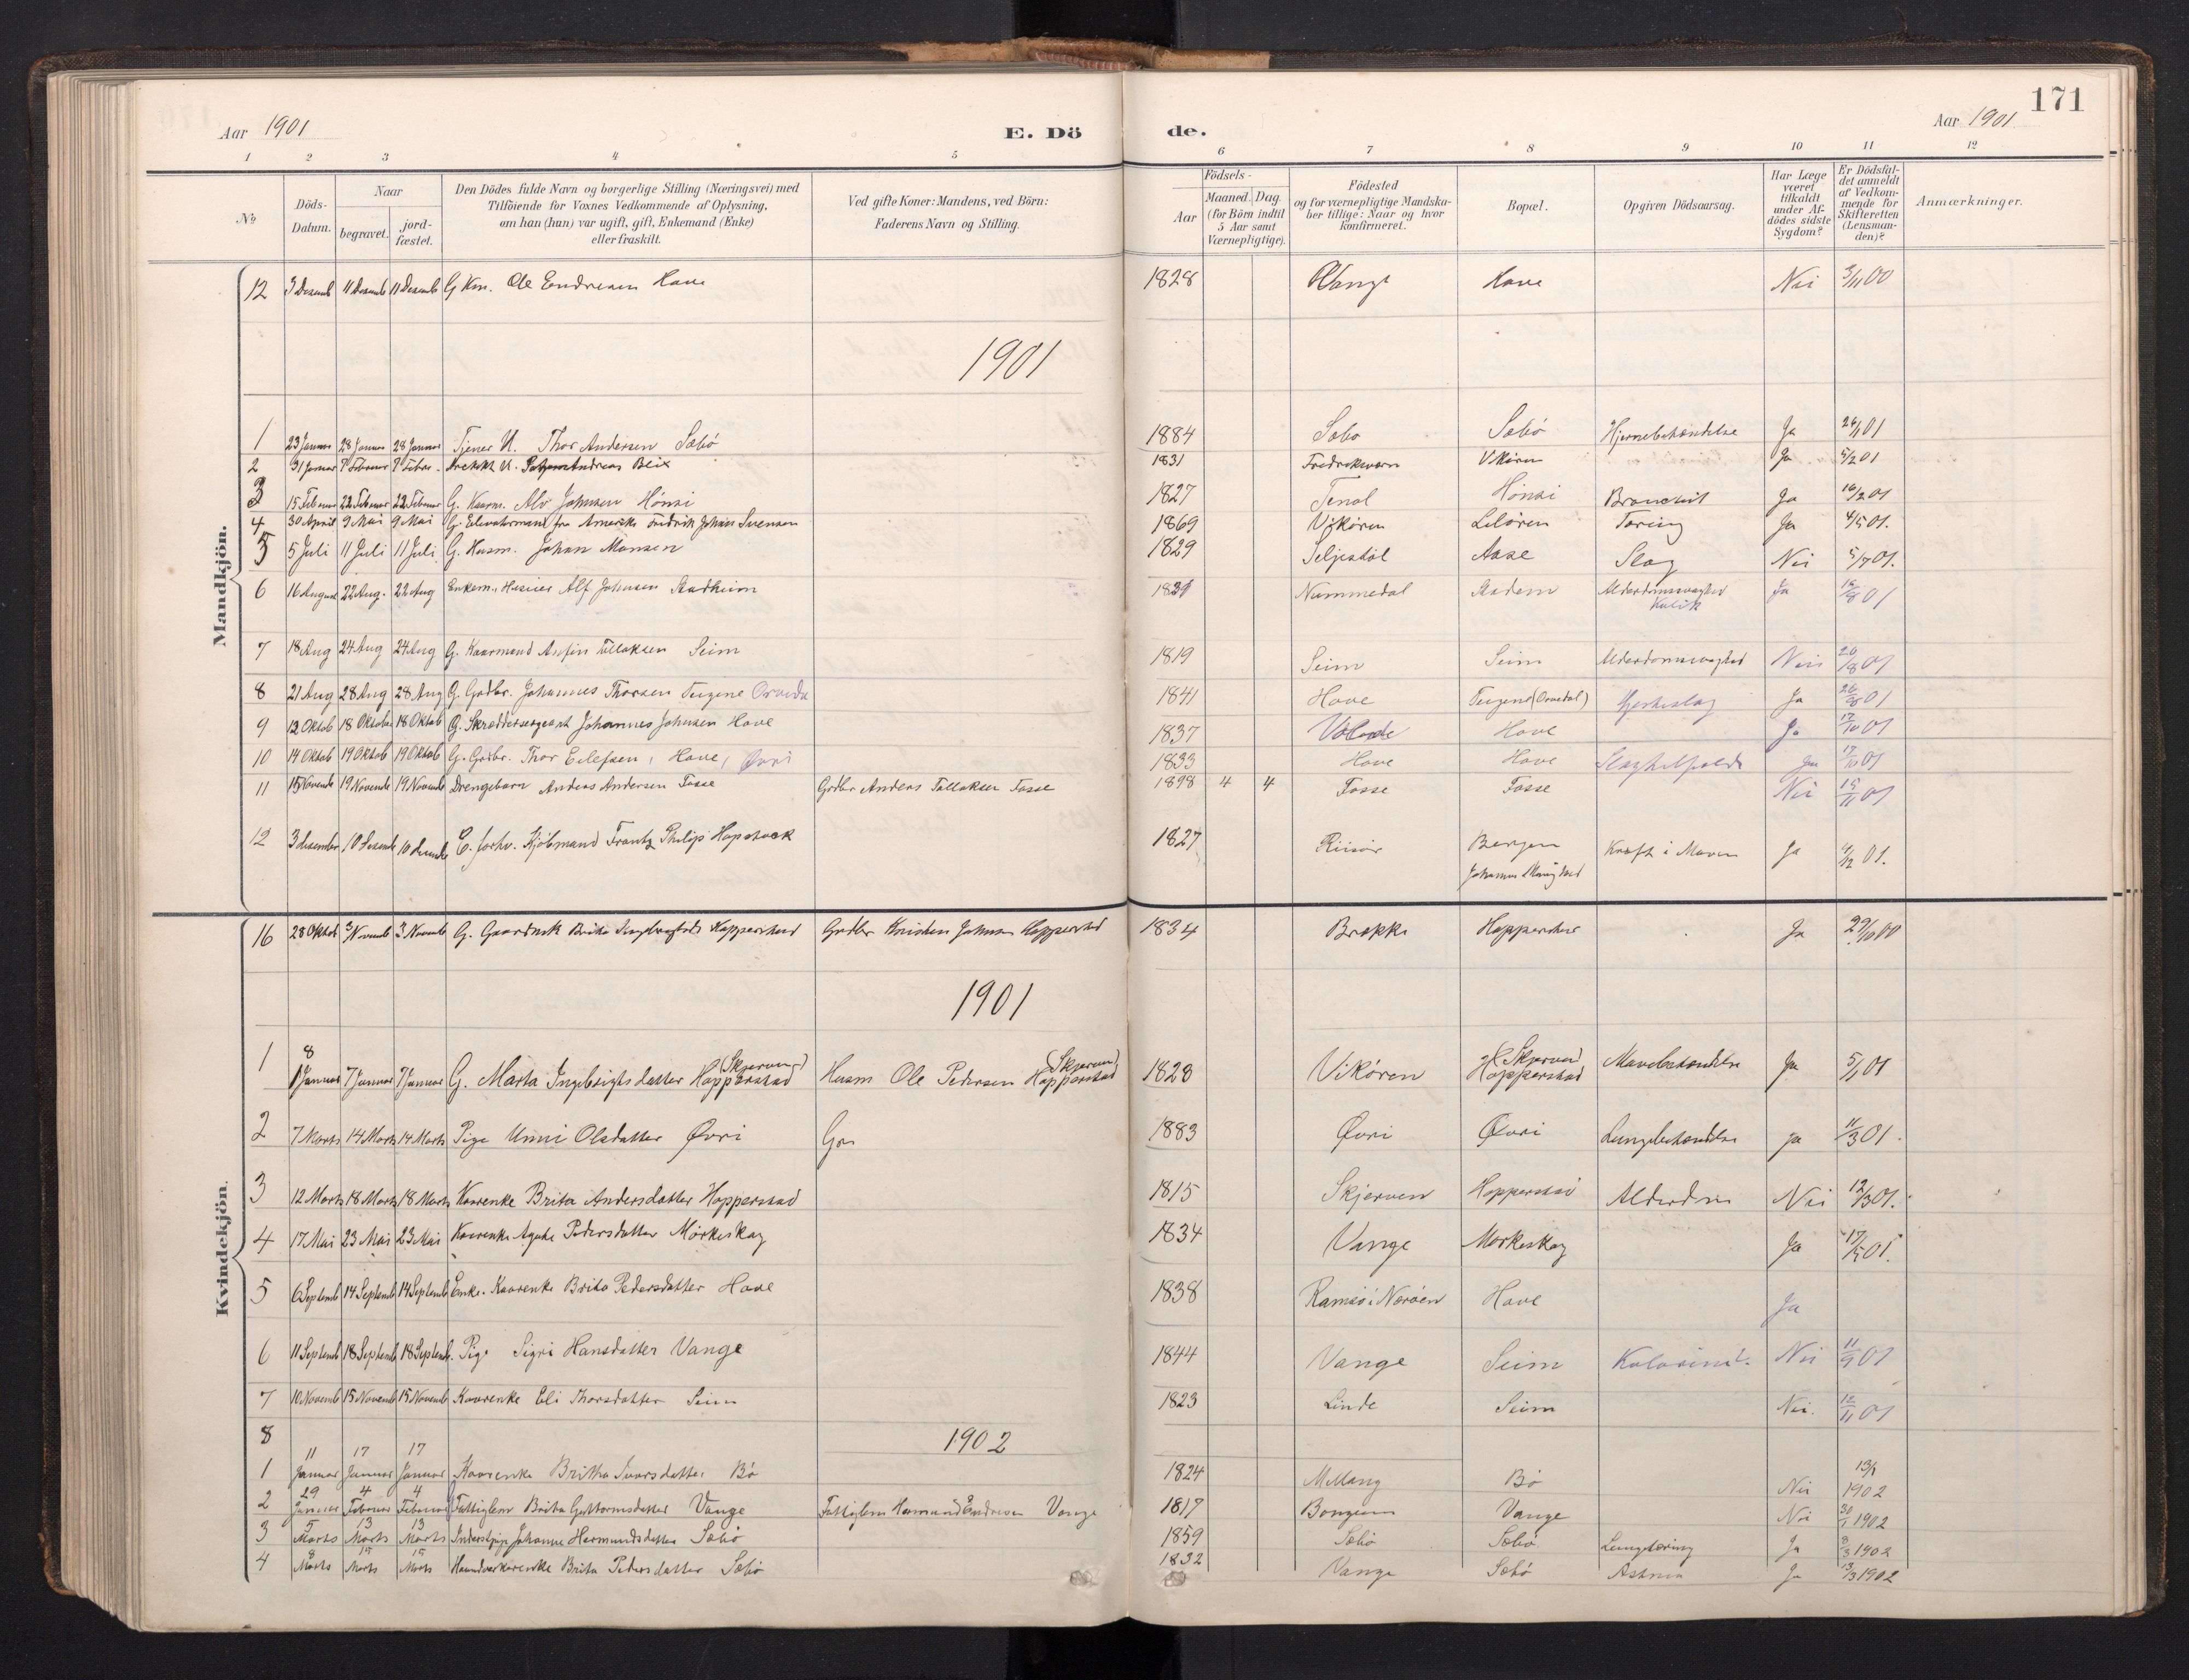 171
Aar 1901
E. Dö de.
Aar 1901.
1 2 3 4 5 6 7 8 9 10 11 12
No
Döds-Datum.
Naar
begravet.
jord-fæstet.
Den Dödes fulde Navn og borgerlige Stilling (Næringsvei) med
Tilföiende for Voxnes Vedkommende af Oplysning,
om han (hun) var ugift, gift, Enkemand (Enke)
eller fraskilt.
Ved gifte Koner: Mandens, ved Börn:
Faderens Navn og Stilling.
Födsels-
Aar
Maaned. Dag.
(for Börn indtil
5 Aar samt
Værnepligtige).
Födested
og for værnepligtige Mandska-
ber tillige: Naar og hvor
konfirmeret.
Bopæl.
Opgiven Dödsaarsag.
Har Læge
været
tilkaldt
under Af-
dödes sidste
Sygdom?
Er Dödsfal-
det anmeldt
af Vedkom-
mende for
Skifteretten
(Lensman-
den)?
Anmærkninger.
Mandkjön.
12 3 Desemb 11 Desemb 11 Desemb G Km. Ole Endresen Hove 1828 Vange Hove Nei 3/11 00
1901
1 23 Januar 28 Januar 28 Januar Tjener U. Thor Andersen Sæbö 1884 Sæbö Sæbö Hjernebetændelse Ja 26/1 01
2 31 Januar 7 Februar 7 Febr. U. Andreas Blix 1831 Fredriksværn Vikøren Ja 5/2 01
3 15 Februar 22 Februar 22 Februar G. Kaarm. Johnsen Hönsi 1827 Tenol Hönsi Bronchit Ja 16/2 01
4 30 April 9 Mai 9 Mai G. fra Amerika Fredrik Johan Svensen 1869 Vikören Leløren Tæring Ja 4/5 01.
5 5 Juli 11 Juli 11 Juli G. Husm. Johan Monsen 1829 Seljestöl Aase Slag Nei 5/7 01.
6 16 August 22 Aug. 22 Aug Enkem. Alf Johnsen Stadheim 1831 Nummedal Stadem Alderdomssvaghed Ja 16/8 01
7 18 Aug 24 Aug 24 Aug G. Kaarmand Anfin Tollaksen Seim 1819 Seim Seim Alderdomssvaghed Nei 20/8 01
8 21 Aug 28 Aug 28 Aug G. Grdbr. Johannes Thorsen Tenzene Orvedal 1841 Hove Tenzene (Orvedal) Hjerteslag Ja 26/8 01
9 12 Oktob 18 Oktober 18 Oktob G. Skræddersergeant Johannes Johnsen Hove 1837 Hove Ja 17/10 01
10 14 Oktob 19 Oktob 19 Oktob G. Grdbr. Thor Eilefsen, Hove, Øvri 1833 Hove Hove Ja 17/10 01
11 15 Novemb 19 Novemb 19 Novemb Drengebarn Anders Andersen Fosse Grdbr Anders Tollaksen Fosse 1898 4 4 Fosse Fosse Nei 15/11 01
12 3 desember 10 desemb 10 desemb E. forhv. Kjöbmand Frantz Philip Hopstock 1827 Riisör Bergen Kræft i Maven Ja 4/12 01.
Kvindekjön.
16 28 Oktob 3 Novemb 3 Novemb G. Brita Ingebrigtsd Hopperstad Grdbr Kristen Johnsen Hopperstad 1834 Brække Hopperstad Ja 29/10 00
1901
1 8 Januar 7 Januar 7 Januar G. Marta Ingebrigtsdatter Hopperstad (Skjerven) Husm Ole Pedersen Hopperstad (Skjerven) 1828 Vikøren Hopperstad (Skjerven) Mavebetændelse Ja 5/1 01
2 7 Marts 14 Marts 14 Marts Pige Unni Olsdatter Øvri 1883 Øvri Øvri Lungebetændelse ja 11/3 01.
3 12 Marts 18 Marts 18 Marts Kaarenke Brita Andersdatter Hopperstad 1815 Skjerven Hopperstad Alderdom Nei 12/3 01.
4 17 Mai 23 Mai 23 Mai Kaarenke Agate Pedersdatter Mørkeskog 1834 Vange Mørkeskog Ja 17/5 01.
5 6 Septemb 14 Septemb 14 Septemb Enke. Kaarenke Brita Pedersdatter Hove 1838 Ramsöi Næröen Hove Ja
6 11 Septemb 18 Septemb 18 Septemb. Pige Sigri Hansdatter Vange 1844 Vange Seim Nei 11/9 01
7 10 Novemb 15 Novemb 15 Novemb Kaarenke Eli Thorsdatter Seim 1823 Linde Seim Nei. 12/11 01
8
1902
1 11 Januar 17 Januar 17 Januar Kaarenke Britha Ivarsdatter Bö 1824 Bö Nei 13/1 1902
2 29 Januar 4 Februar 4 Februar Fattiglem Brita Guttormsdatter Vange Fattiglem Hermund Endresen Vange 1817 Vange Nei 30/1 1902
3 5 Marts 13 Marts 13 Marts Johanne Hermundsdatter Sæbö 1859 Sæbö Sæbö Lungetæring Ja 8/3 1902
4 8 Marts 15 Marts 15 Marts Brita Pedersdatter Sæbö 1832 Vange Sæbö Astma Ja 13/3 1902